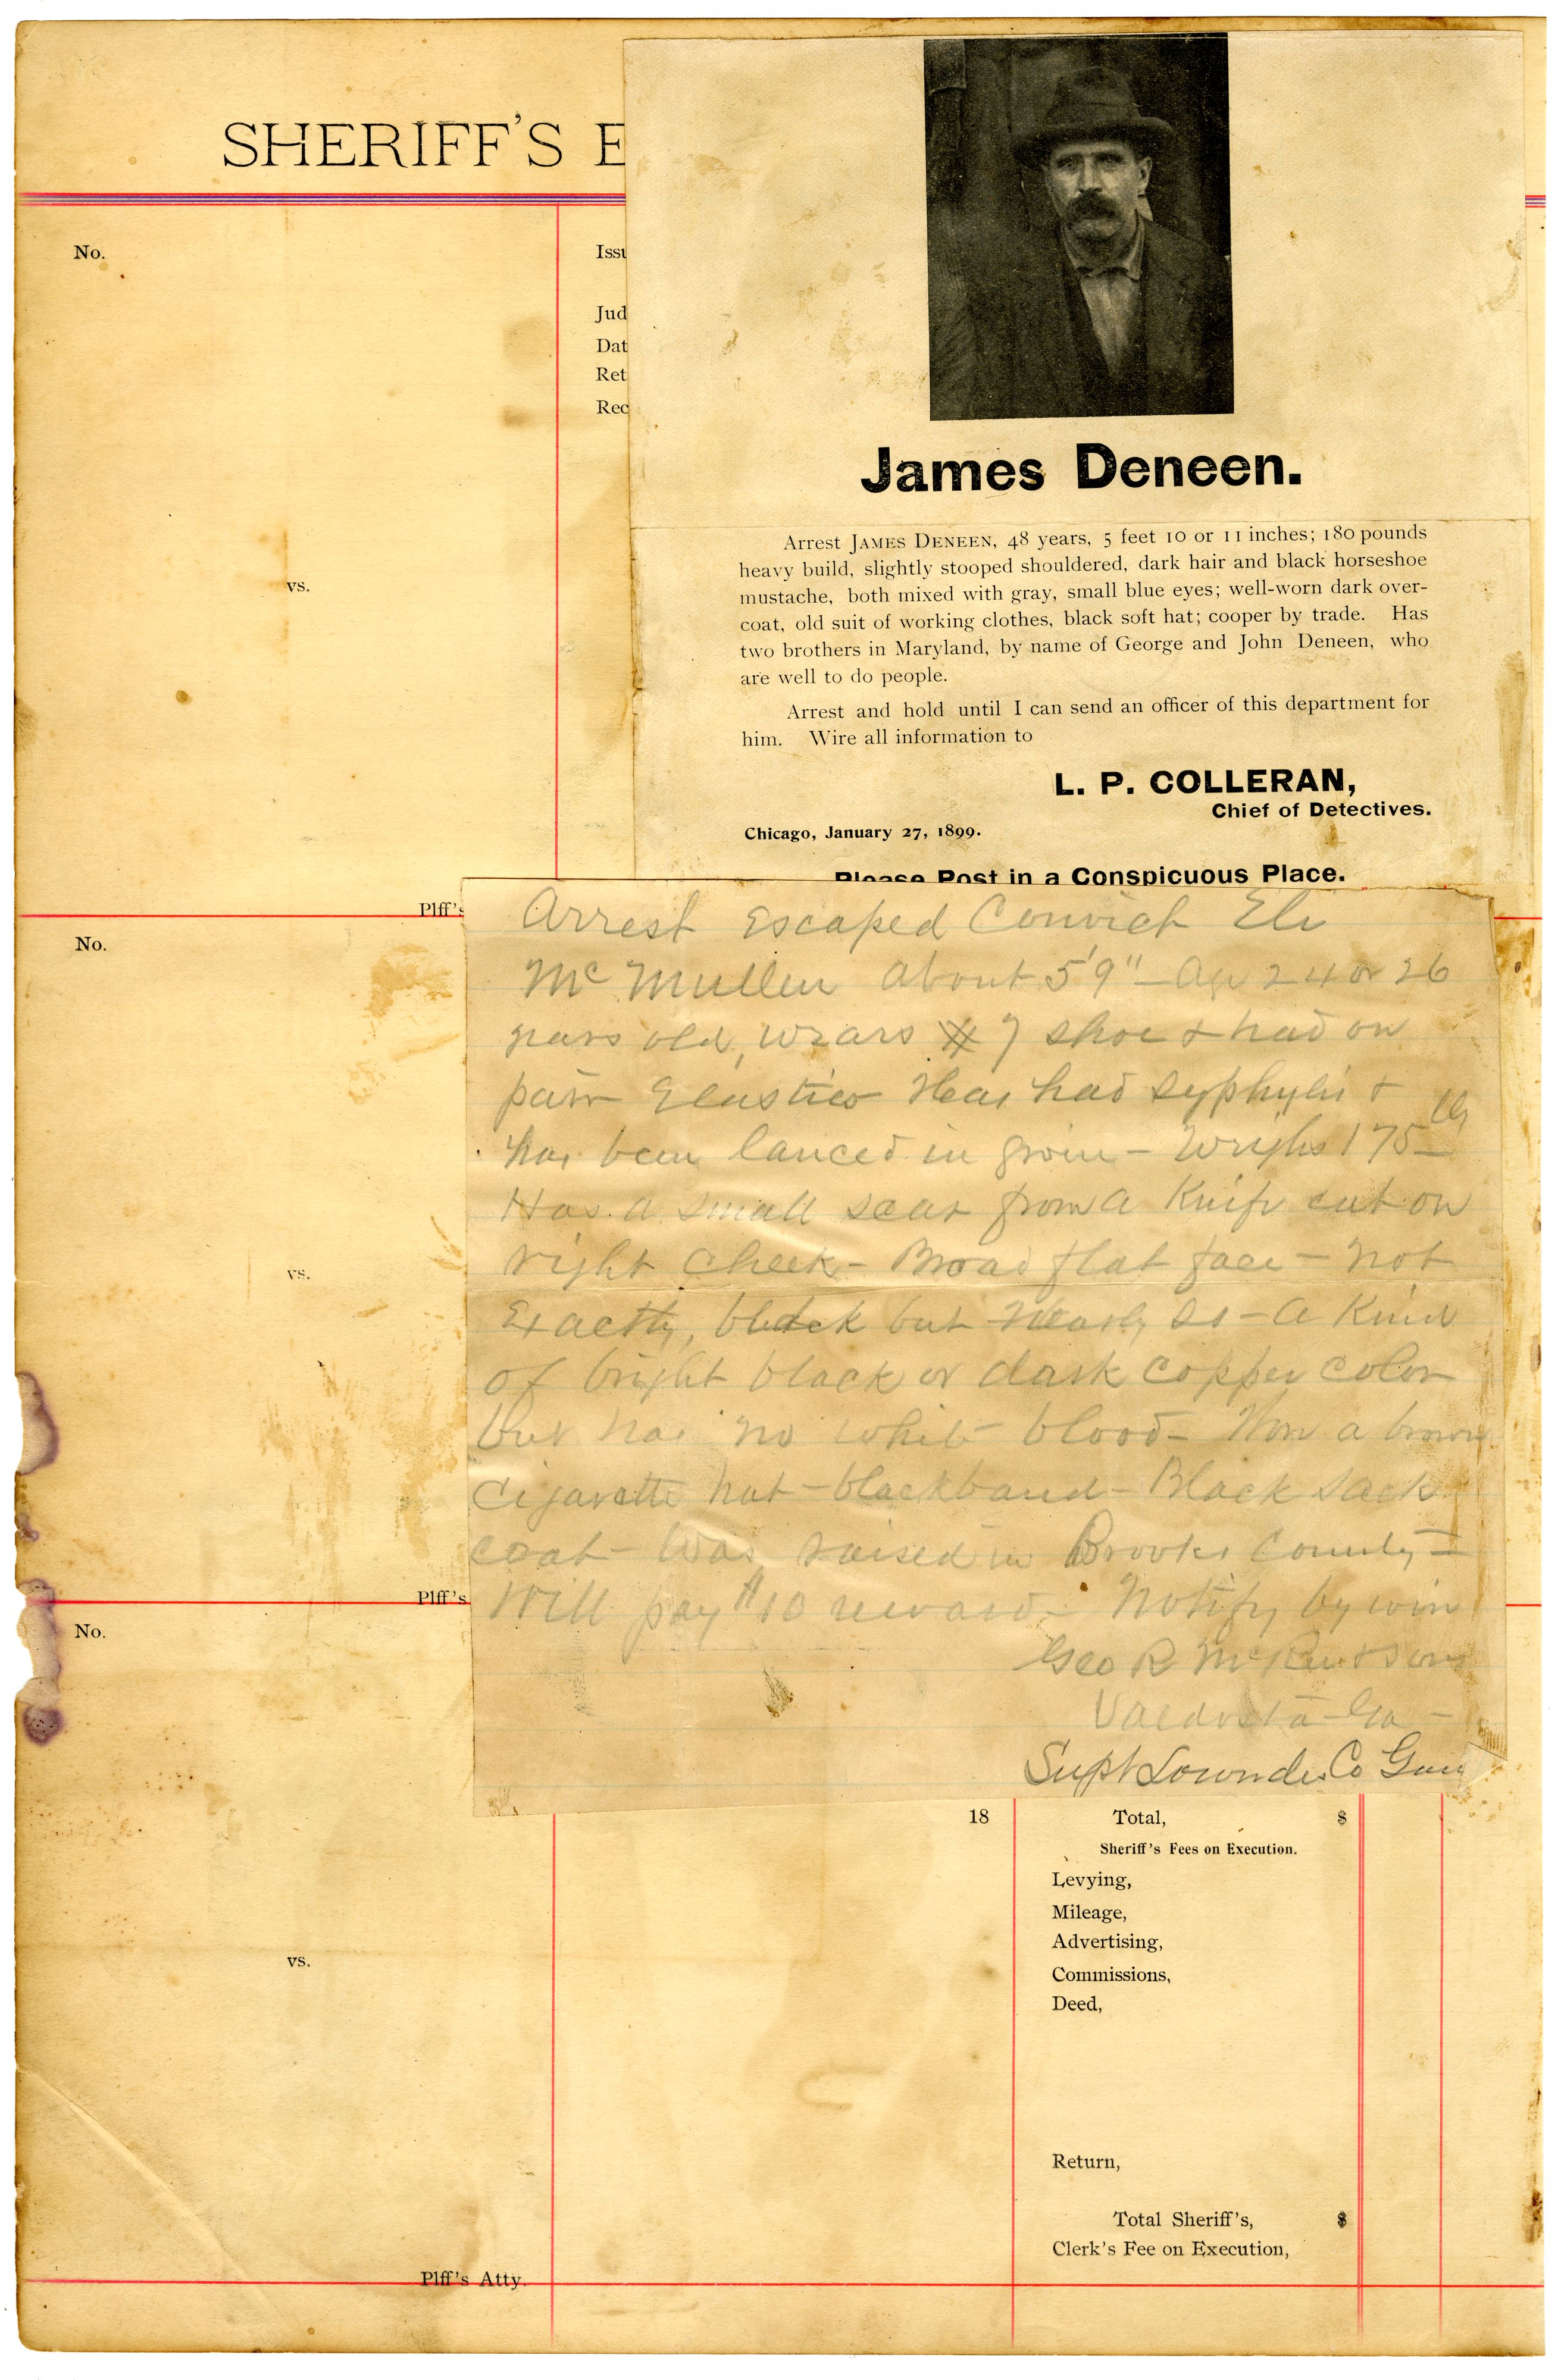 SHERIFF'S E
No.
Issu
Jud
Dat
Ret
Rec
vs.
Plff's
James Deneen.
Arrest JAMES DENEEN, 48 years, 5 feet 10 or 11 inches; 180 pounds
heavy build, slightly stooped shouldered, dark hair and black horseshoe
mustache, both mixed with gray, small blue eyes; well-worn dark over-
coat, old suit of working clothes, black soft hat; cooper by trade. Has
two brothers in Maryland, by name of George and John Deneen, who
are well to do people.
Arrest and hold until I can send an officer of this department for
him. Wire all information to
L. P. COLLERAN,
Chief of Detectives.
Chicago, January 27, 1899.
Please Post in a Conspicuous Place.
No.
vs.
Plff's
Arrest Escaped Convict Eli
McMullen About 5'9" - Age 24 or 26
years old, wears # 7 shoe & had on
pair Elastics Has had syphylis &
has been lanced in groin - Weighs 175 lbs
Has a small scar from a Knife cut on
right cheek - Broad flat face - not
Exactly black but nearly so - a Kind
of bright black or dark copper color
but has no white blood - Wore a brown
Cigarette hat - black band - Black sack
coat - Was raised in Brooks County -
Will pay $10 reward - Notify by wire
Geo R Mc
Valdosta Ga -
Supt Lowndes Co Gang
No.
vs.
Plff's Atty.
18
Total, $
Sheriff's Fees on Execution.
Levying,
Mileage,
Advertising,
Commissions,
Deed,
Return,
Total Sheriff's, $
Clerk's Fee on Execution,